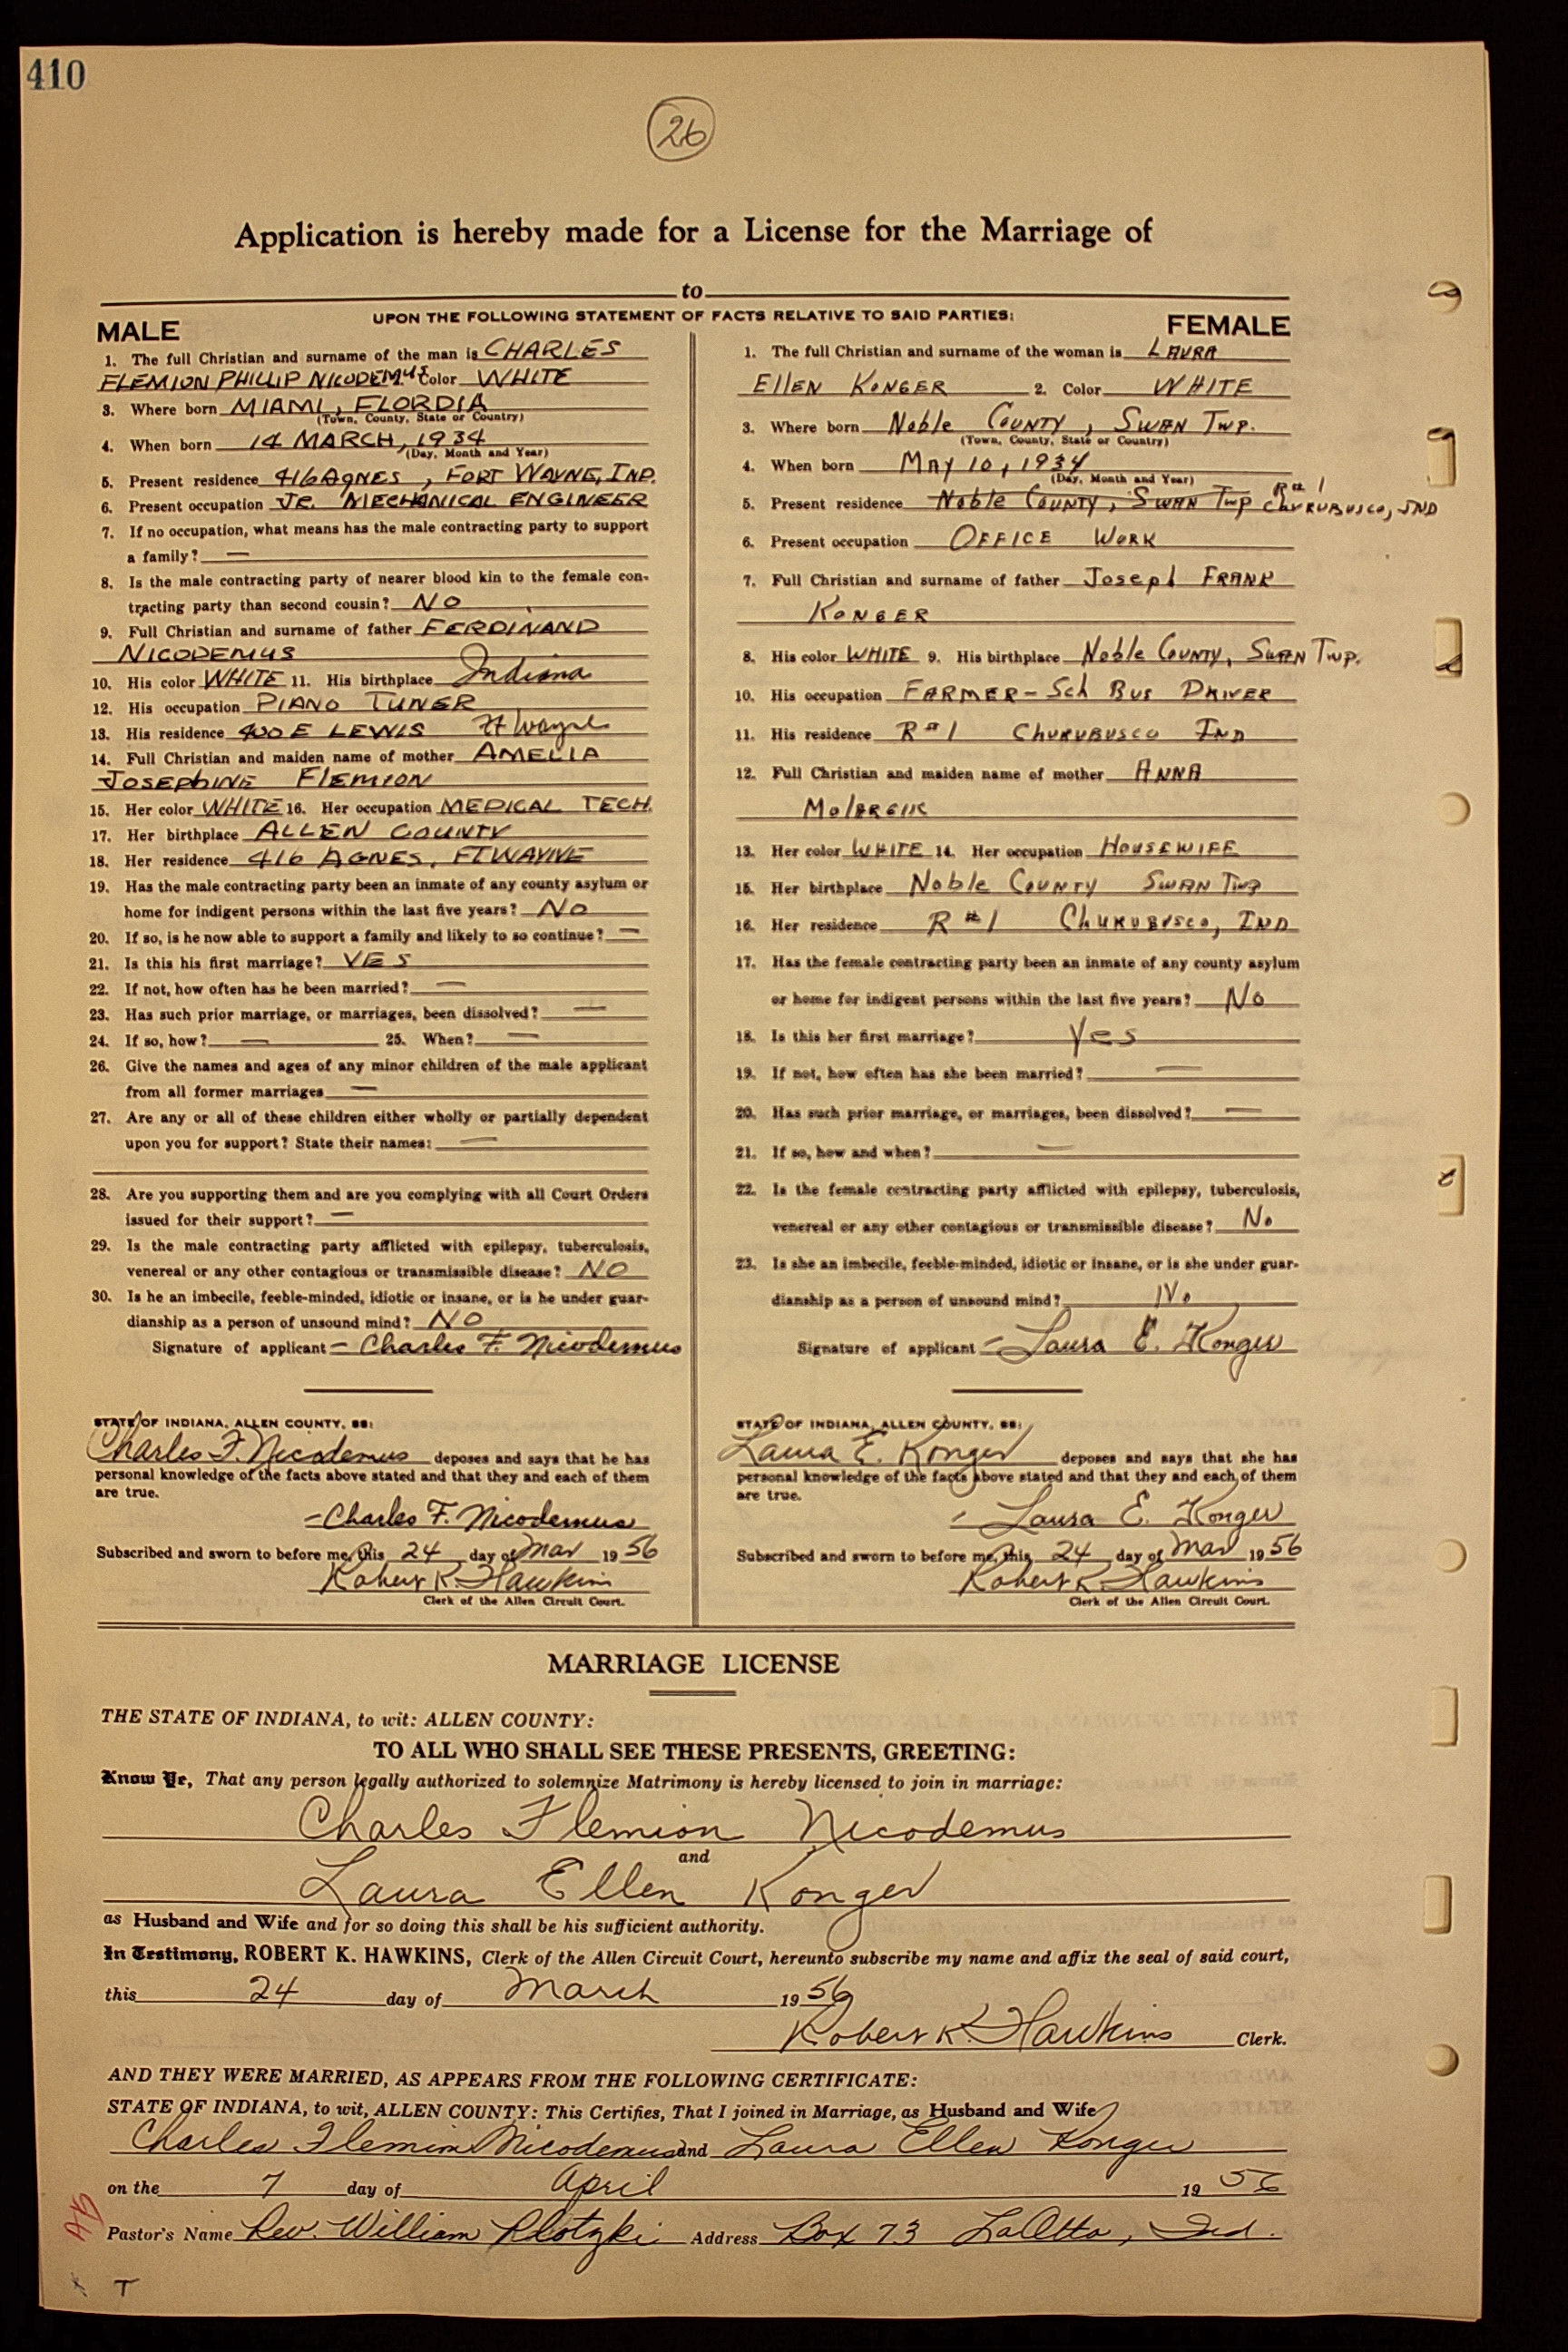 410
26
Application is hereby made for a License for the Marriage of
to
UPON THE FOLLOWING STATEMENT OF FACTS RELATIVE TO SAID PARTIES:
MALE
1. The full Christian and surname of the man is CHARLES
FLEMION PHILLIP NICODEMUS Color WHITE
3. Where born MIAMI, FLORDIA
(Town, County, State or Country)
4. When born 14 MARCH, 1934
(Day, Month and Year)
5. Present residence 416 AGNES, FORT WAYNE, IND.
6. Present occupation JR. MECHANICAL ENGINEER
7. If no occupation, what means has the male contracting party to support
a family? —
8. Is the male contracting party of nearer blood kin to the female con-
tracting party than second cousin? NO
9. Full Christian and surname of father FERDINAND
NICODEMUS
10. His color WHITE 11. His birthplace Indiana
12. His occupation PIANO TUNER
13. His residence 400 E LEWIS Ft Wayne
14. Full Christian and maiden name of mother AMELIA
JOSEPHINE FLEMION
15. Her color WHITE 16. Her occupation MEDICAL TECH.
17. Her birthplace ALLEN COUNTY
18. Her residence 416 AGNES, FT WAYNE
19. Has the male contracting party been an inmate of any county asylum or
home for indigent persons within the last five years? NO
20. If so, is he now able to support a family and likely to so continue? —
21. Is this his first marriage? YES
22. If not, how often has he been married? —
23. Has such prior marriage, or marriages, been dissolved? —
24. If so, how? — 25. When? —
26. Give the names and ages of any minor children of the male applicant
from all former marriages —
27. Are any or all of these children either wholly or partially dependent
upon you for support? State their names: —
28. Are you supporting them and are you complying with all Court Orders
issued for their support? —
29. Is the male contracting party afflicted with epilepsy, tuberculosis,
venereal or any other contagious or transmissible disease? NO
30. Is he an imbecile, feeble-minded, idiotic or insane, or is he under guar-
dianship as a person of unsound mind? NO
Signature of applicant – Charles F. Nicodemus
STATE OF INDIANA, ALLEN COUNTY, SS:
Charles F. Nicodemus deposes and says that he has
personal knowledge of the facts above stated and that they and each of them
are true.
– Charles F. Nicodemus
Subscribed and sworn to before me, this 24 day of Mar 19 56
Robert K. Hawkins
Clerk of the Allen Circuit Court.
FEMALE
1. The full Christian and surname of the woman is LAURA
ELLEN KONGER 2. Color WHITE
3. Where born Noble COUNTY, SWAN TWP.
(Town, County, State or Country)
4. When born MAY 10, 1934
(Day, Month and Year)
5. Present residence Noble COUNTY, SWAN Twp R # 1
CHURUBUSCO, IND
6. Present occupation OFFICE WORK
7. Full Christian and surname of father Joseph FRANK
KONGER
8. His color WHITE 9. His birthplace Noble COUNTY, SWAN TWP.
10. His occupation FARMER - Sch BUS DRIVER
11. His residence R # 1 CHURUBUSCO IND
12. Full Christian and maiden name of mother ANNA
13. Her color WHITE 14. Her occupation HOUSEWIFE
15. Her birthplace Noble COUNTY SWAN TWP
16. Her residence R # 1 CHURUBUSCO, IND
17. Has the female contracting party been an inmate of any county asylum
or home for indigent persons within the last five years? No
18. Is this her first marriage? Yes
19. If not, how often has she been married? —
20. Has such prior marriage, or marriages, been dissolved? —
21. If so, how and when? —
22. Is the female contracting party afflicted with epilepsy, tuberculosis,
venereal or any other contagious or transmissible disease? No
23. Is she an imbecile, feeble-minded, idiotic or insane, or is she under guar-
dianship as a person of unsound mind? No
Signature of applicant – Laura E. Konger
STATE OF INDIANA, ALLEN COUNTY, SS:
Laura E. Konger deposes and says that she has
personal knowledge of the facts above stated and that they and each of them
are true.
– Laura E. Konger
Subscribed and sworn to before me, this 24 day of Mar 19 56
Robert K. Hawkins
Clerk of the Allen Circuit Court.
MARRIAGE LICENSE
THE STATE OF INDIANA, to wit: ALLEN COUNTY:
TO ALL WHO SHALL SEE THESE PRESENTS, GREETING:
Know Ye, That any person legally authorized to solemnize Matrimony is hereby licensed to join in marriage:
Charles Flemion Nicodemus
and
Laura Ellen Konger
as Husband and Wife and for so doing this shall be his sufficient authority.
In Testimony, ROBERT K. HAWKINS, Clerk of the Allen Circuit Court, hereunto subscribe my name and affix the seal of said court,
this 24 day of March 19 56
Robert K. Hawkins Clerk.
AND THEY WERE MARRIED, AS APPEARS FROM THE FOLLOWING CERTIFICATE:
STATE OF INDIANA, to wit, ALLEN COUNTY: This Certifies, That I joined in Marriage, as Husband and Wife
Charles Flemion Nicodemus and Laura Ellen Konger
on the 7 day of April 19 56
Pastor's Name Rev. William Plotzki Address Box 73 LaOtto, Ind.
T